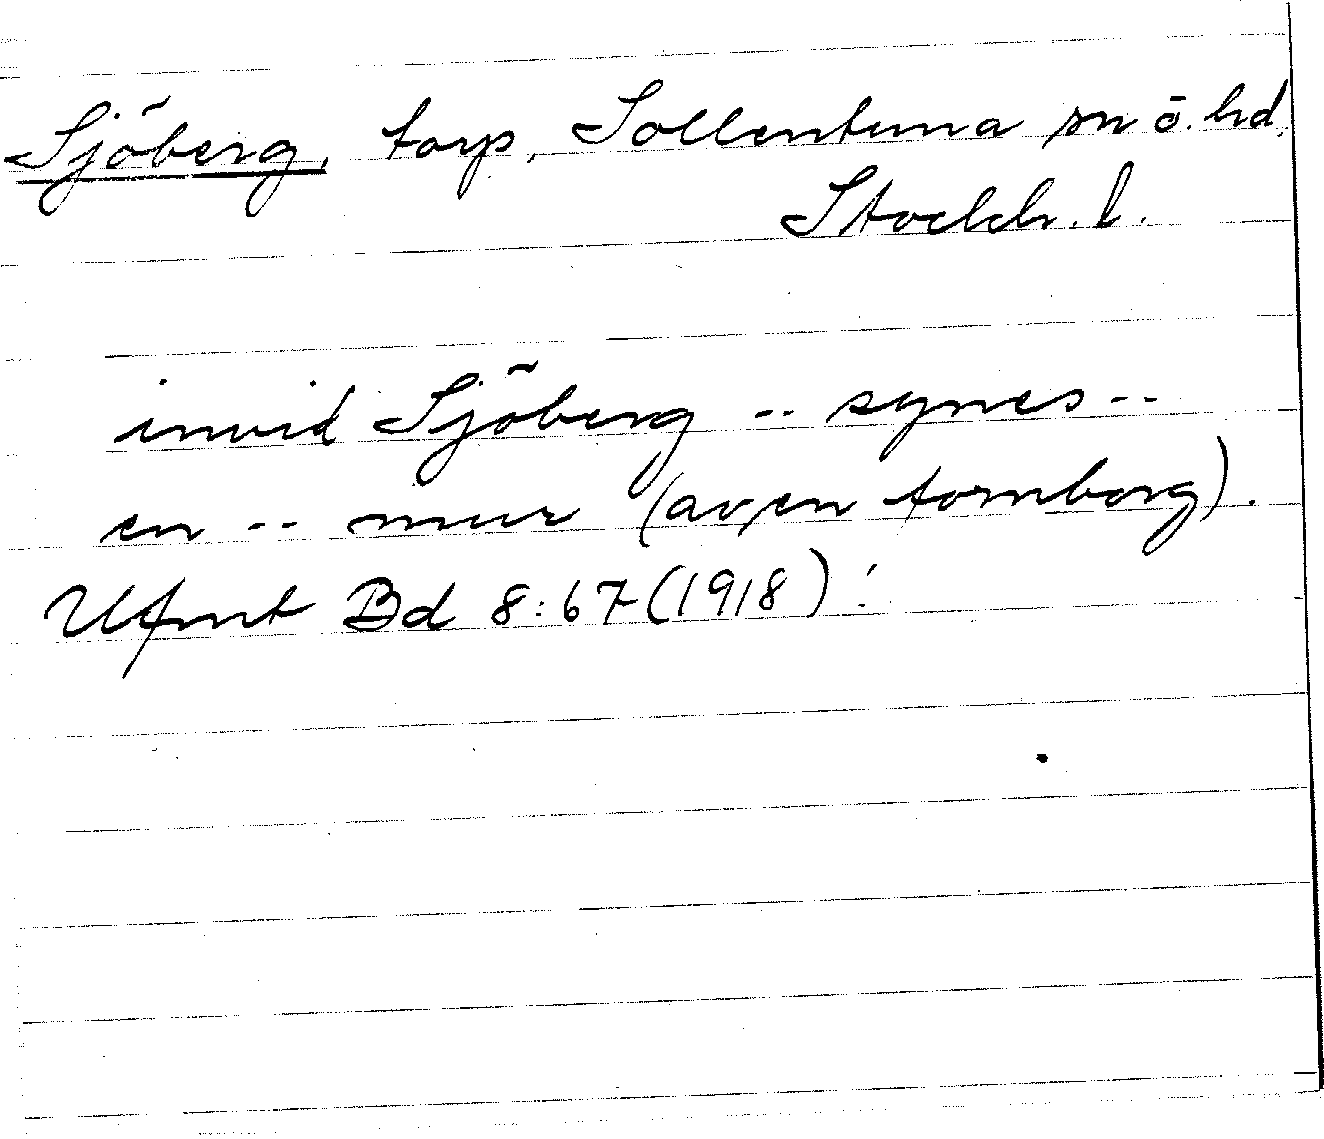 Sjöberg, torp, Sollentuna sn o. hd,
Stockh. l.
invid Sjöberg -- synes --
en -- mur (av en fornborg).
Ufmt Bd 8:67 (1918)